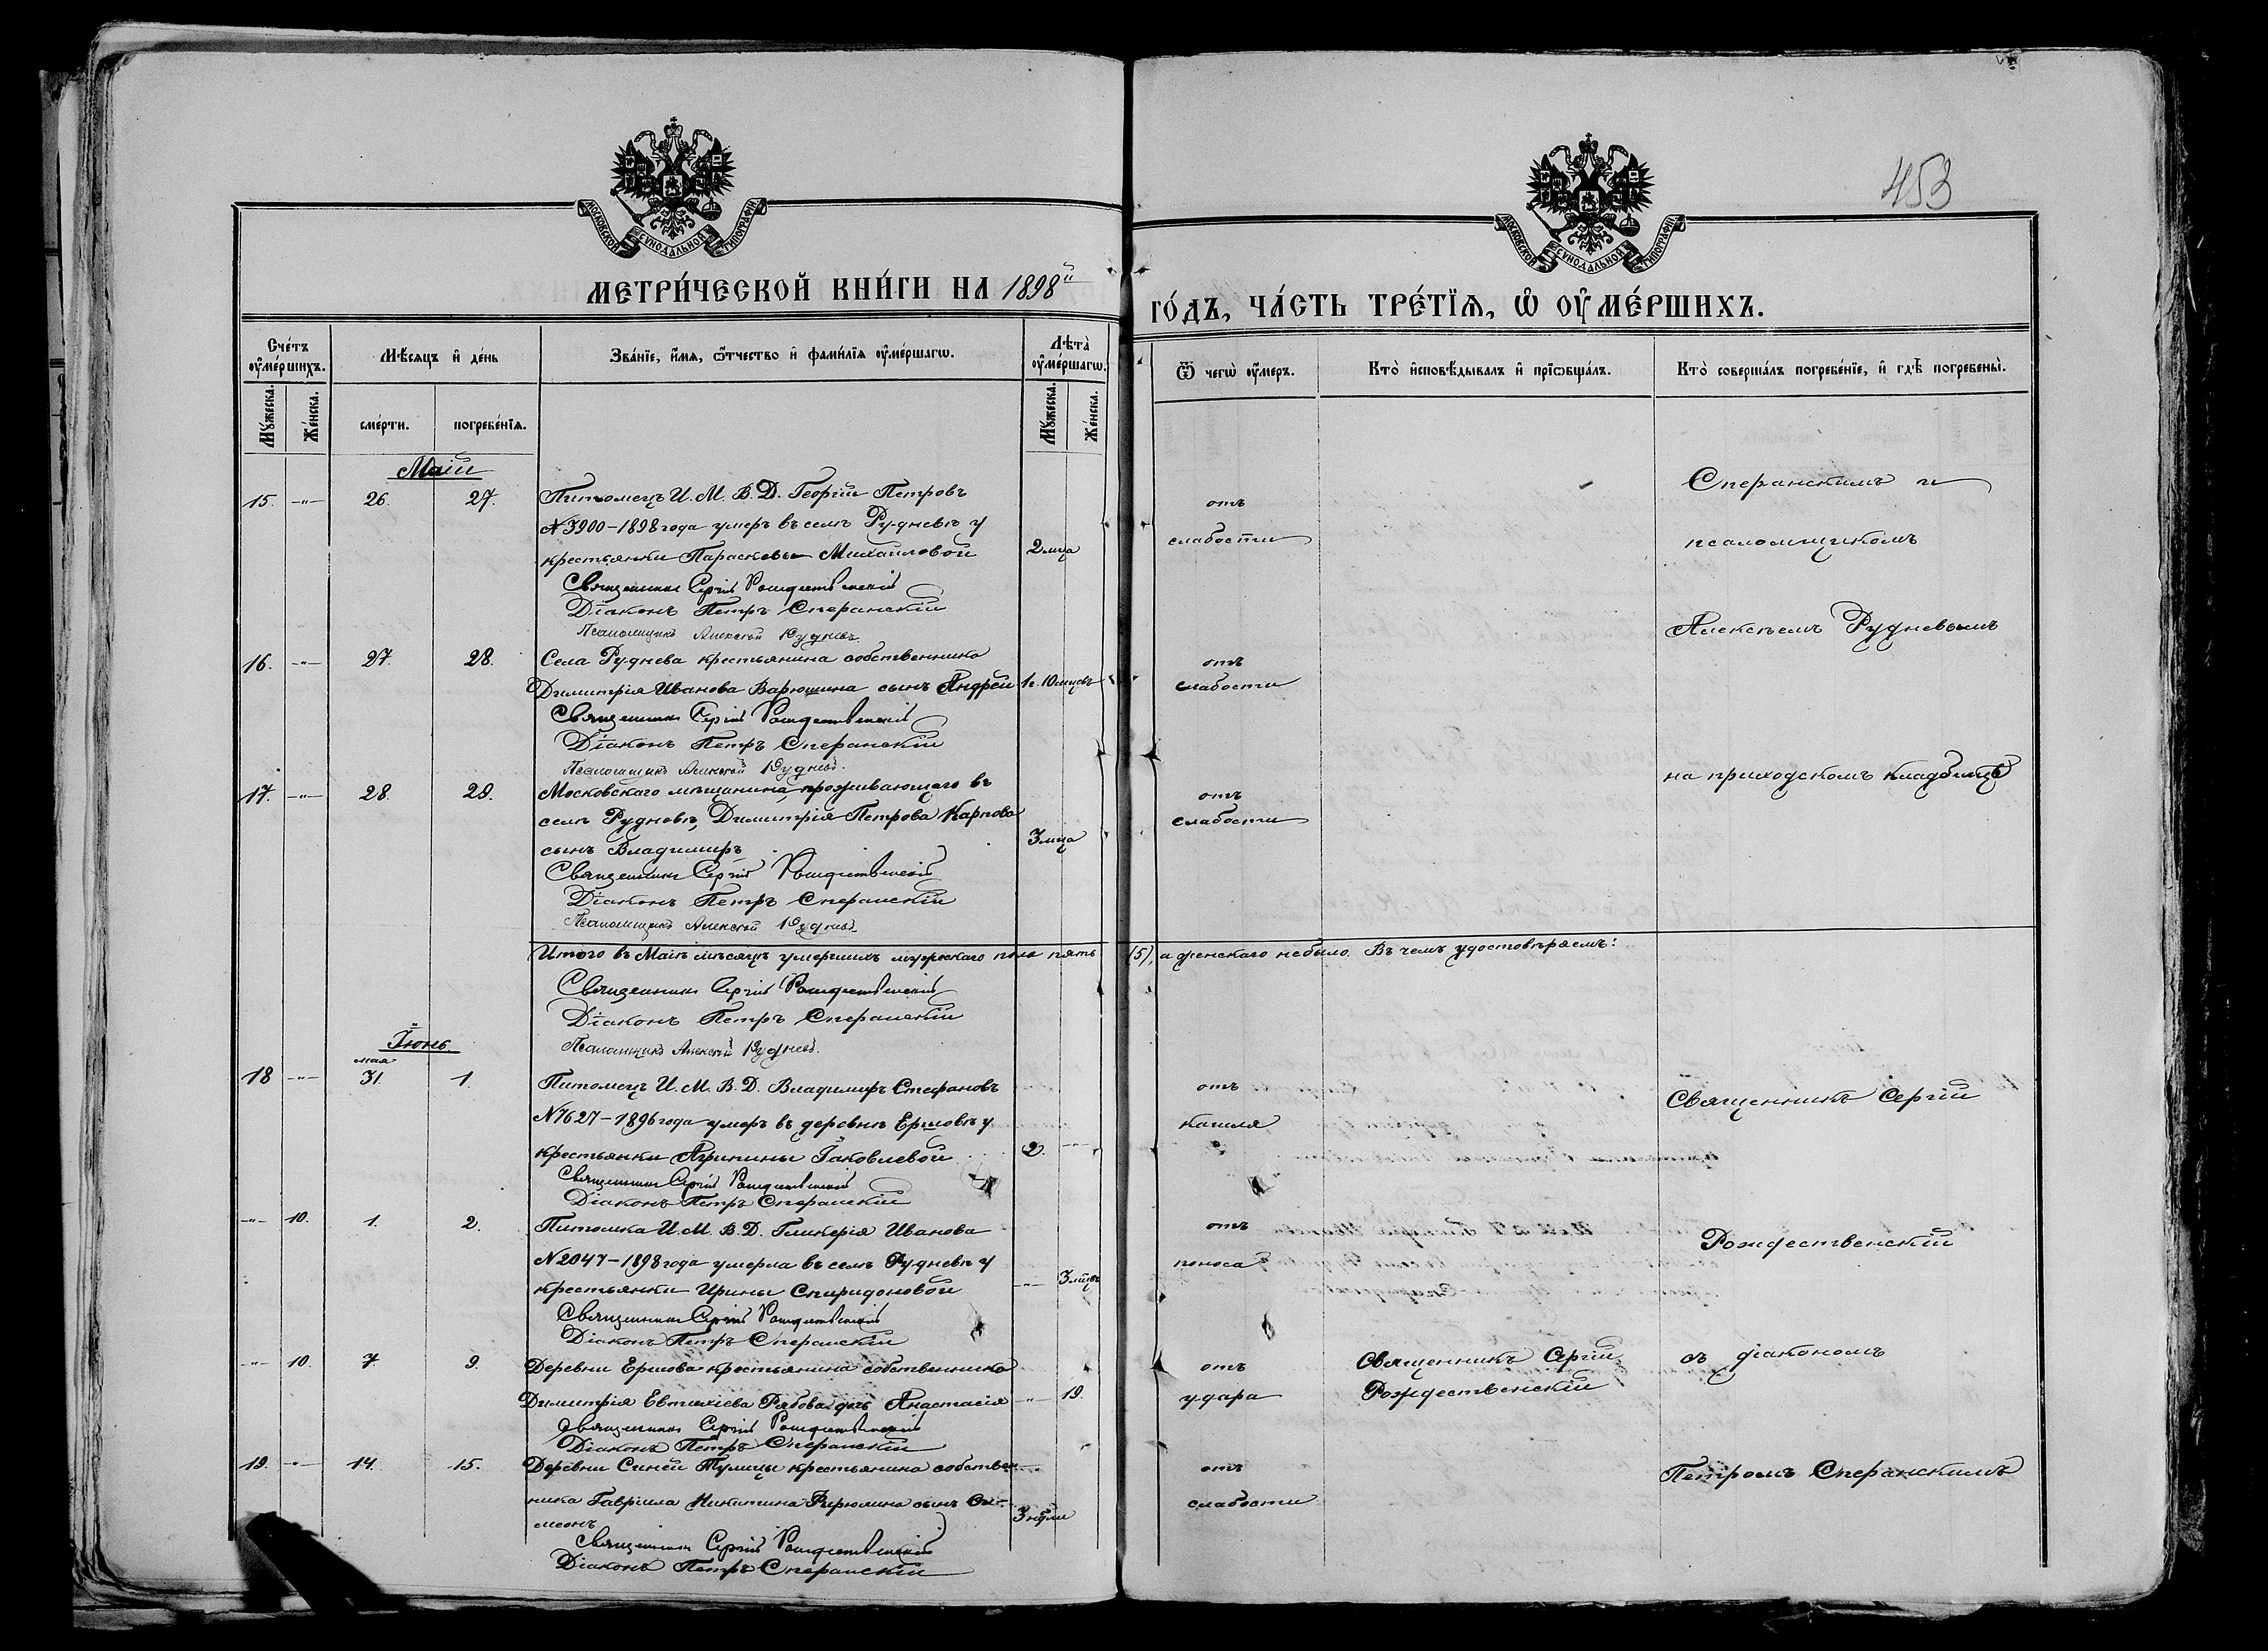 453
МОСКОВСКОЙ СУНОДАЛЬНОЙ ТИПОГРАФІИ
МОСКОВСКОЙ СУНОДАЛЬНОЙ ТИПОГРАФІИ
МЕТРИ́ЧЕСКОЙ КНИ́ГИ НА 1898й
ГО́ДЪ, ЧА́СТЬ ТРЕ́ТЇѦ, Ѡ҆ ОУ҆МЕ́РШИХЪ.
Сче́тъ оу҆ме́ршихъ.
Мѣ́сяцъ и҆ де́нь
Зва́нїе, и҆́мѧ, ѻ҆́тчество и҆ фами́лїѧ оу҆ме́ршагѡ.
Лѣта̀ оу҆ме́ршагѡ.
Мꙋ́жеска. Же́нска.
сме́рти. погребе́нїѧ.
Мꙋ́жеска. Же́нска.
Ѿ чегѡ̀ оу҆́меръ.
Кто̀ и҆сповѣ́дывалъ и҆ прїѡбща́лъ.
Кто̀ соверша́лъ погребе́нїе, и҆ гдѣ̀ погребены̀.
Маій
15. -"- 26. 27. Питомецъ И. М. В. Д. Георгій Петровъ
№ 3900-1898 года умеръ въ селѣ Рудневѣ у
крестьянки Параскевы Михаиловой 2 мца
Священникъ Сергій Рождественскій
Діаконъ Петръ Сперанскій
Псаломщикъ Алексѣй Рудневъ
отъ
слабости
Сперанскимъ и
псаломщикомъ
Алексѣемъ Рудневымъ
16. -"- 27. 28. Села Руднева крестьянина собственника
Димитрія Иванова Варюшина сынъ Андрей 1г. 10 мцевъ
Священникъ Сергій Рождественскій
Діаконъ Петръ Сперанскій
Псаломщикъ Алексѣй Рудневъ.
отъ
слабости
на приходскомъ кладбищѣ
17. -"- 28. 29. Московскаго мѣщанина, проживающаго въ
селѣ Рудневѣ, Димитрія Петрова Карпова
сынъ Владимиръ 3 мца
Священникъ Сергій Рождественскій
Діаконъ Петръ Сперанскій
Псаломщикъ Алексѣй Рудневъ
отъ
слабости
Итого въ Маіѣ мѣсяцѣ умершихъ мужскаго пола пять (5), а женскаго небыло. Въ чемъ удостовѣряемъ:
Священникъ Сергій Рождественскій
Діаконъ Петръ Сперанскій
Псаломщикъ Алексѣй Рудневъ.
Іюнь
мая
18 -"- 31. 1. Питомецъ И. М. В. Д. Владимиръ Стефановъ
№ 7627-1896 года умеръ въ деревнѣ Ершовѣ у
крестьянки Агрипины Іаковлевой 2. -"-
Священникъ Сергій Рождественскій
Діаконъ Петръ Сперанскій
отъ
кашля
Священникъ Сергій
-"- 10. 1. 2. Питомка И. М. В. Д. Гликерія Иванова
№ 2047-1898 года умерла въ селѣ Рудневѣ у
крестьянки Ирины Спиридоновой -"- 3 мцевъ
Священникъ Сергій Рождественскій
Діаконъ Петръ Сперанскій
отъ
поноса
Рождественскій
-"- 10. 7 9. Деревни Ершова крестьянина собственника
Димитрія Евтихіева Рябова дочь Анастасія -"- 19.
Священникъ Сергій Рождественскій
Діаконъ Петръ Сперанскій
отъ
удара
Священникъ Сергій
Рождественскій
съ діакономъ
19. -"- 14. 15. Деревни Синей Тулицы крестьянина собствен
ника Гавріила Никитина Фирюлина сынъ Си-
меонъ 3 нѣдли
Священникъ Сергій Рождественскій
Діаконъ Петръ Сперанскій
отъ
слабости
Петромъ Сперанскимъ